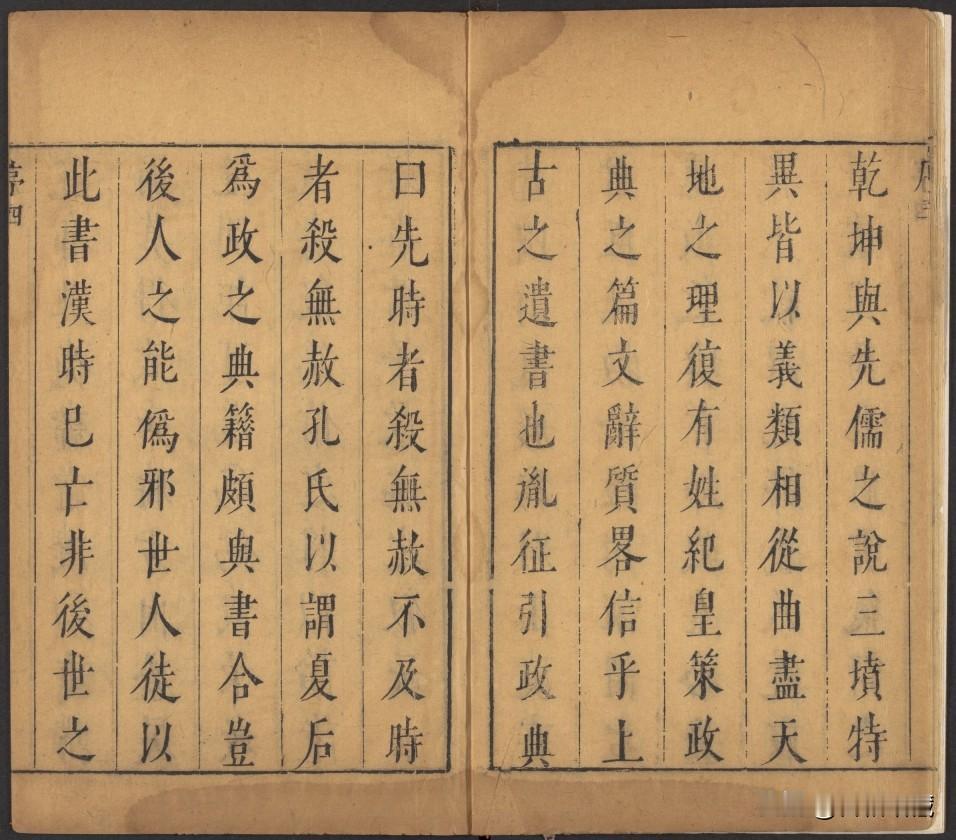 乾坤與先儒之說三墳特
異皆以義類相從曲盡天
地之理復有姓紀皇策政
典之篇文辭質畧信乎上
古之遺書也胤征引政典
曰先時者殺無赦不及時
者殺無赦孔氏以謂夏后
爲政之典籍頗與書合豈
後人之能僞邪世人徒以
此書漢時巳亡非後世之
序四